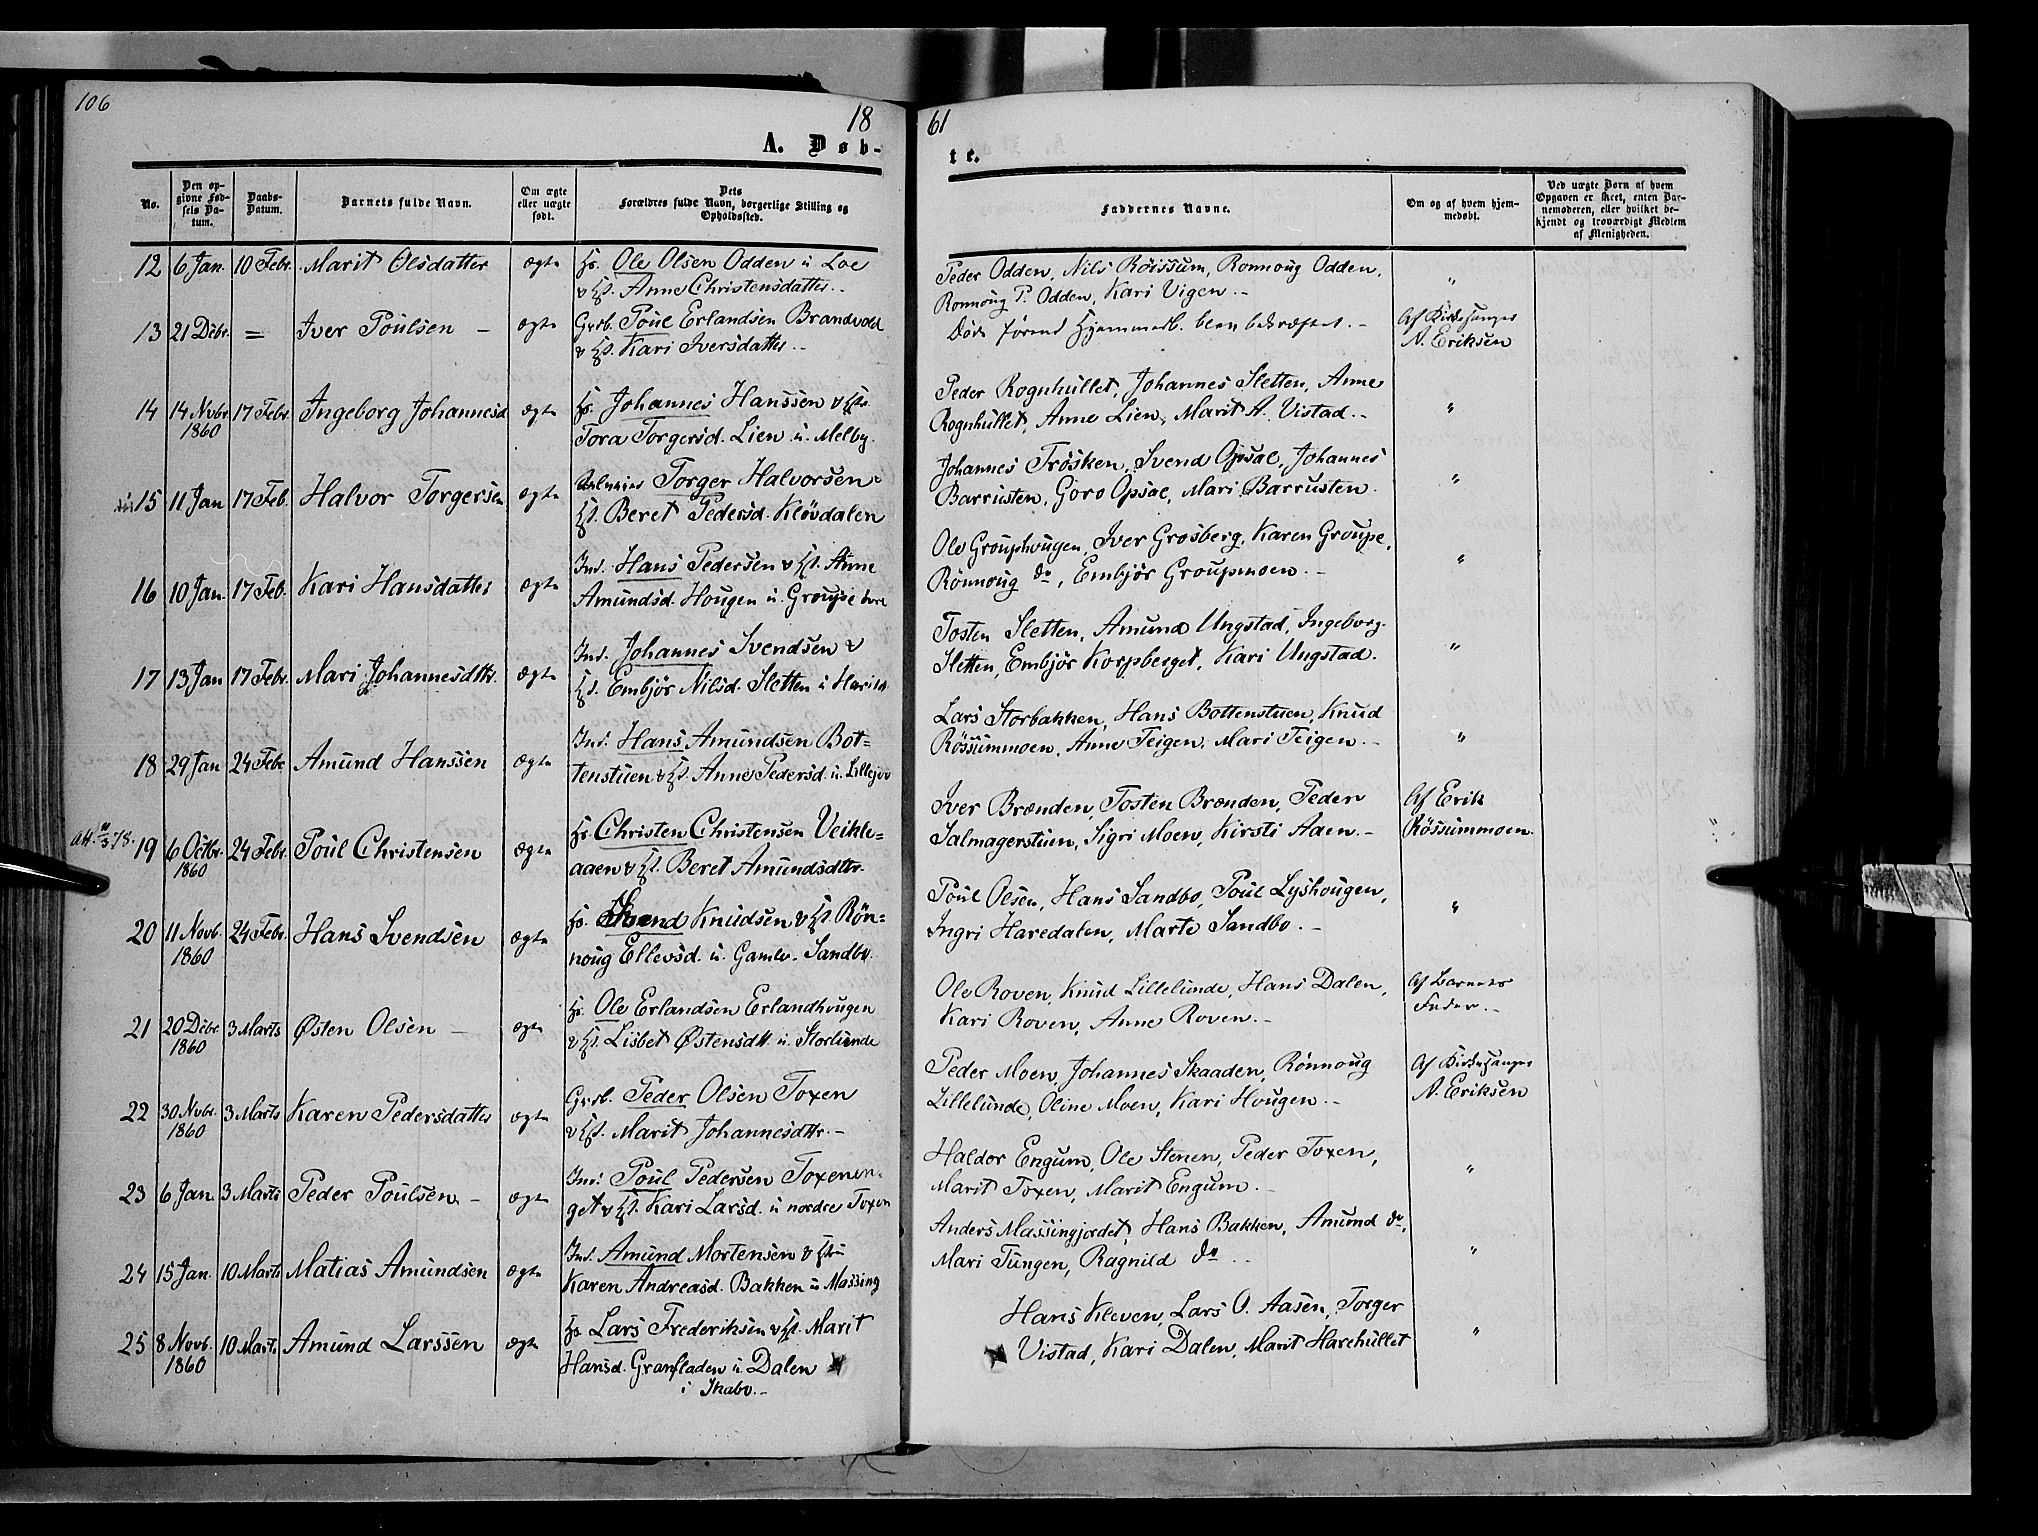 106
18
61
A. Døb-
te.
No.
Den op-
givne Fød-
sels Da-
tum.
Daabs-
Datum.
Barnets fulde Navn.
Om ægte
eller uægte
født.
Dets
Forældres fulde Navn, borgerlige Stilling og
Opholdssted.
Faddernes Navne.
Om og af hvem hjem-
medøbt.
Ved uægte Børn af hvem
Opgaven er skeet, enten Bar-
nemoderen, eller hvilket be-
kjendt og troværdigt Medlem
af Menigheden.
12 6 Jan. 10 Febr. Marit Olsdatter ægte Hs. Ole Olsen Odden u. Loe
& Hst. Anne Christensdatter.
Peder Odden, Nils Röissum, Ronnoug Odden,
Ronnoug P. Odden, Kari Vigen. "
13 21 Debr. = Iver Poulsen - ægte Grb. Poul Erlandsen Brandvold
& Hst. Kari Iversdatter.
Døde førend Hjemmed. blev bekræftet. Af Kirkesanger
N. Eriksen
14 14 Novbr. 17 Febr. Ingeborg Johannesd ægte Hs. Johannes Hanssen & Hst.
1860 Tora Torgersd. Lien u. Melby.
Peder Rognhullet, Johannes Sletten, Anne
Rognhullet, Anne Lien, Marit A. Vistad. "
15 11 Jan 17 Feb. Halvor Torgersen ægte Torger Halvorsen
Hst. Beret Pedersd. Klövdalen
Johannes Frösken, Svend Opsal, Johannes
Barrusten, Goro Opsal, Mari Barrusten. "
16 10 Jan. 17 Feb. Kari Hansdatter ægte Ind. Hans Pedersen & Hst. Anne
Amundsd. Hougen u. Groupe
Ole Grouphougen, Iver Grosberg, Karen Groupe,
Rönnoug do, Embjör Groupmoen. "
17 13 Jan 17 Febr. Mari Johannesdtr. ægte Ind. Johannes Svendsen &
Hst. Embjör Nilsd. Sletten u
Tosten Sletten, Amund Ungstad, Ingeborg
Sletten, Embjör Korpberget, Kari Ungstad. "
18 29 Jan 24 Febr Amund Hanssen ægte Ind. Hans Amundsen Bot=
tenstuen & Hst. Anne Pedersd. u.
Lars Storbakken, Hans Bottenstuen, Knud
Rössummoen, Anne Teigen, Mari Teigen. "
Att. 11/3 78. 19 6 Octbr. 24 Febr. Poul Christensen ægte Hs. Christen Christensen Veikle=
1860 aaen & Hst. Beret Amundsdtr.
Iver Brænden, Tosten Brænden, Peder
Salmagerstuen, Sigri Moen, Kirsti Aaen. Af Erik
Rössummoen.
20 11 Novb. 24 Febr. Hans Svendsen ægte Hs. Svend Knudsen & Hst. Rön=
1860 noug Ellevsd. u. Gamlv. Sandbo.
Poul Olsen, Hans Sandbo, Poul Lyshougen,
Ingri Haredalen, Marte Sandbo. "
21 20 Debr 3 Marts Østen Olsen - ægte Hs. Ole Erlandsen Erlandhougen
1860 & Hst. Lisbet Østensdtr. u. Storlunde
Ole Roven, Knud Lillelunde, Hans Dalen,
Kari Roven, Anne Roven. Af Barnets
Fader.
22 30 Novbr. 3 Marts Karen Pedersdatter ægte Grb. Peder Olsen Toxen
1860 & Hst. Marit Johannesdtr.
Peder Moen, Johannes Skaaden, Rönnoug
Lillelunde, Oline Moen, Kari Hougen. Af Kirkesanger
N. Eriksen
23 6 Jan. 3 Marts Peder Poulsen - ægte Ind. Poul Pedersen Toxenen-
get & Hst. Kari Larsd. u nordre Toxen
Haldor Engum, Ole Stenen, Peder Toxen,
Marit Toxen, Marit Engum. "
24 15 Jan. 10 Marts Matias Amundsen ægte Ind. Amund Mortensen & Hst.
Karen Andreasd. Bakken u Massing
Anders Massingjordet, Hans Bakken, Amund do,
Mari Tungen, Ragnild do. "
25 8 Novb. 10 Marts Amund Larssen ægte Hs. Lars Frederiksen & Hst. Marit
1860 Hansd. Granfladen u. Dalen
i Skabo.
Hans Kleven, Lars O. Aasen, Torger
Vistad, Kari Dalen, Marit Harehullet "